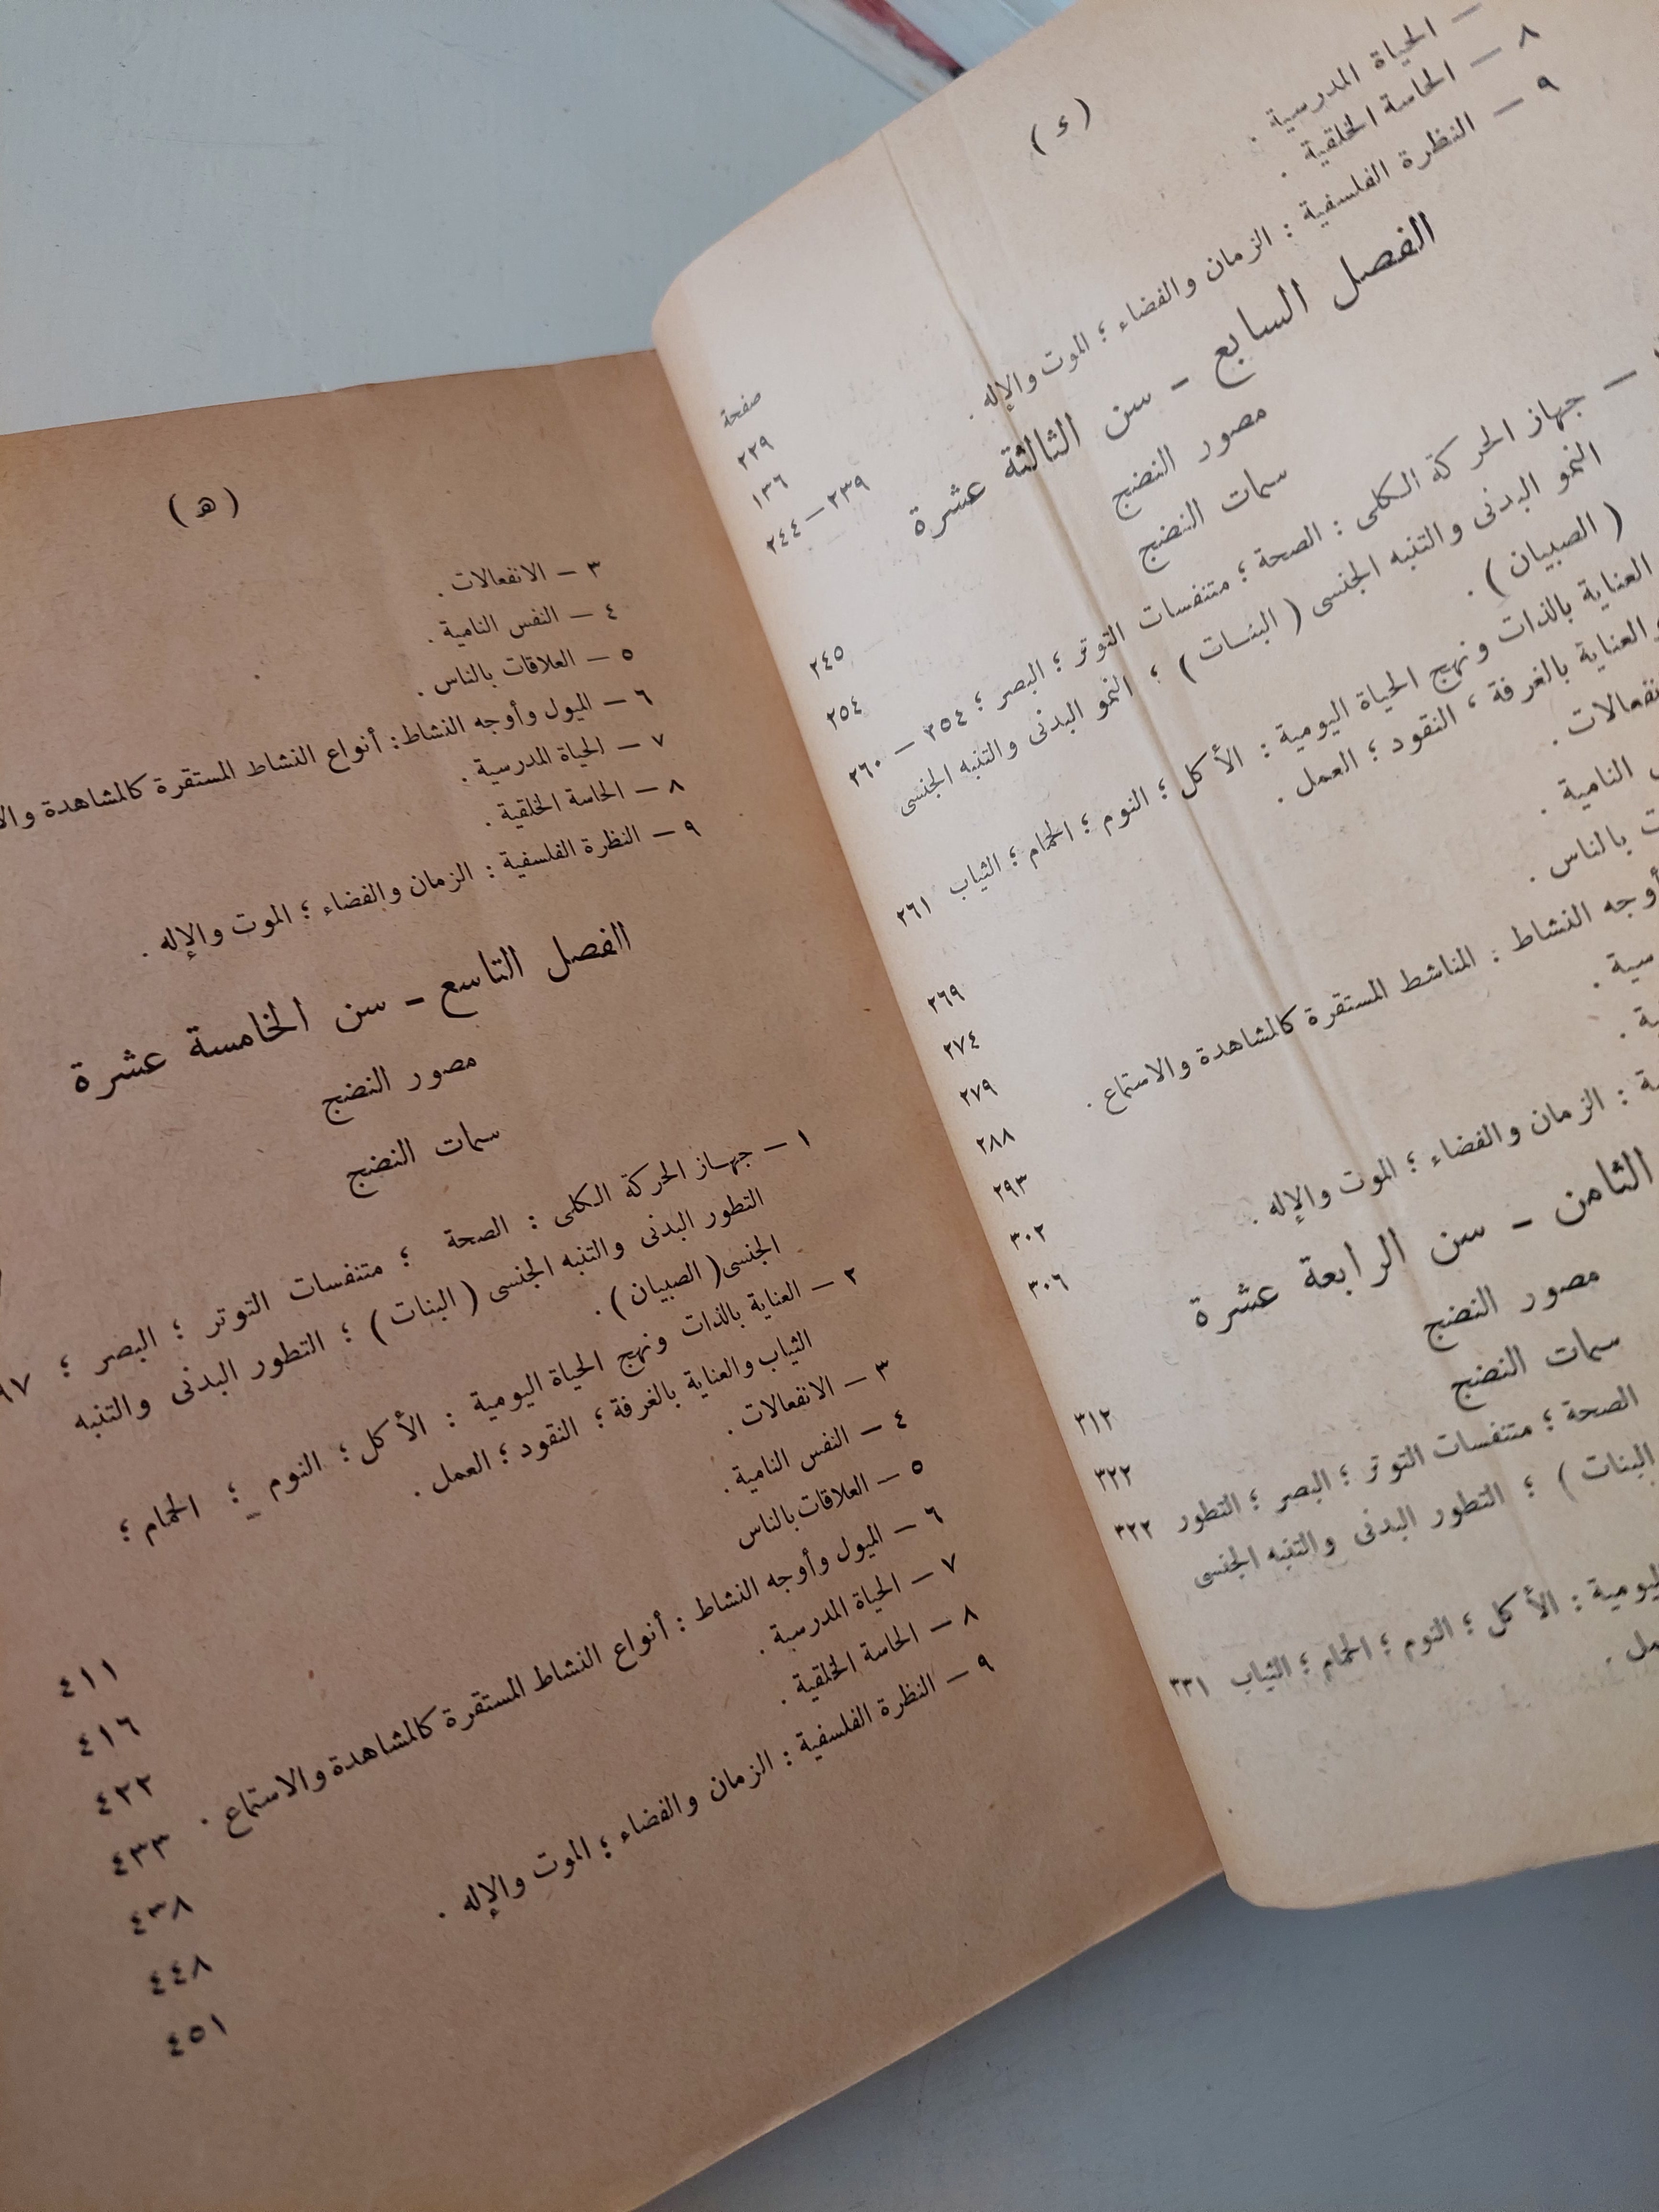 ( ء )
صفحة
— الحياة المدرسية . ٢٢٩
٨ — الحاسة الخلقية . ١٣٦
٩ — النظرة الفلسفية : الزمان والفضاء ؛ الموت والإله . ٢٣٩ — ٢٤٤
الفصل السابع - سن الثالثة عشرة
مصور النضج ٢٤٥
سمات النضج ٢٥٤
— جهاز الحركة الكلى : الصحة ؛ متنفسات التوتر ؛ البصر ؛ ٢٥٤ — ٢٦٠
النمو البدنى والتنبه الجنسى ( البنات ) ؛ النمو البدنى والتنبه الجنسى
( الصبيان ) .
العناية بالذات ونهج الحياة اليومية : الأكل ؛ النوم ؛ الحمام ؛ الثياب ٢٦١
والعناية بالغرفة ، النقود ؛ العمل .
٢٦٩
النامية . ٢٧٤
بالناس . ٢٧٩
أوجه النشاط : المناشط المستقرة كالمشاهدة والاستماع . ٢٨٨
٢٩٣
٣٠٢
: الزمان والفضاء ؛ الموت والإله . ٣٠٦
الثامن - سن الرابعة عشرة
مصور النضج ٣١٢
سمات النضج ٣٢٢
الصحة ؛ متنفسات التوتر ؛ البصر ؛ التطور ٣٢٢
البنات ) ؛ التطور البدنى والتنبه الجنسى
: الأكل ؛ النوم ؛ الحمام ؛ الثياب ٣٣١
( ھ )
٣ — الانفعالات .
٤ — النفس النامية .
٥ — العلاقات بالناس .
٦ — الميول وأوجه النشاط : أنواع النشاط المستقرة كالمشاهدة
٧ — الحياة المدرسية .
٨ — الحاسة الخلقية .
٩ — النظرة الفلسفية : الزمان والفضاء ؛ الموت والإله .
الفصل التاسع - سن الخامسة عشرة
مصور النضج
سمات النضج
١ — جهاز الحركة الكلى : الصحة ؛ متنفسات التوتر ؛ البصر ؛
التطور البدنى والتنبه الجنسى ( البنات ) ؛ التطور البدنى والتنبه
الجنسى ( الصبيان ) .
٢ — العناية بالذات ونهج الحياة اليومية : الأكل ؛ النوم ؛ الحمام ؛
الثياب والعناية بالغرفة ؛ النقود ؛ العمل .
٣ — الانفعالات . ٤١١
٤ — النفس النامية . ٤١٦
٥ — العلاقات بالناس ٤٢٢
٦ — الميول وأوجه النشاط : أنواع النشاط المستقرة كالمشاهدة والاستماع . ٤٣٣
٧ — الحياة المدرسية . ٤٣٨
٨ — الحاسة الخلقية . ٤٤٨
٩ — النظرة الفلسفية : الزمان والفضاء ؛ الموت والإله . ٤٥١